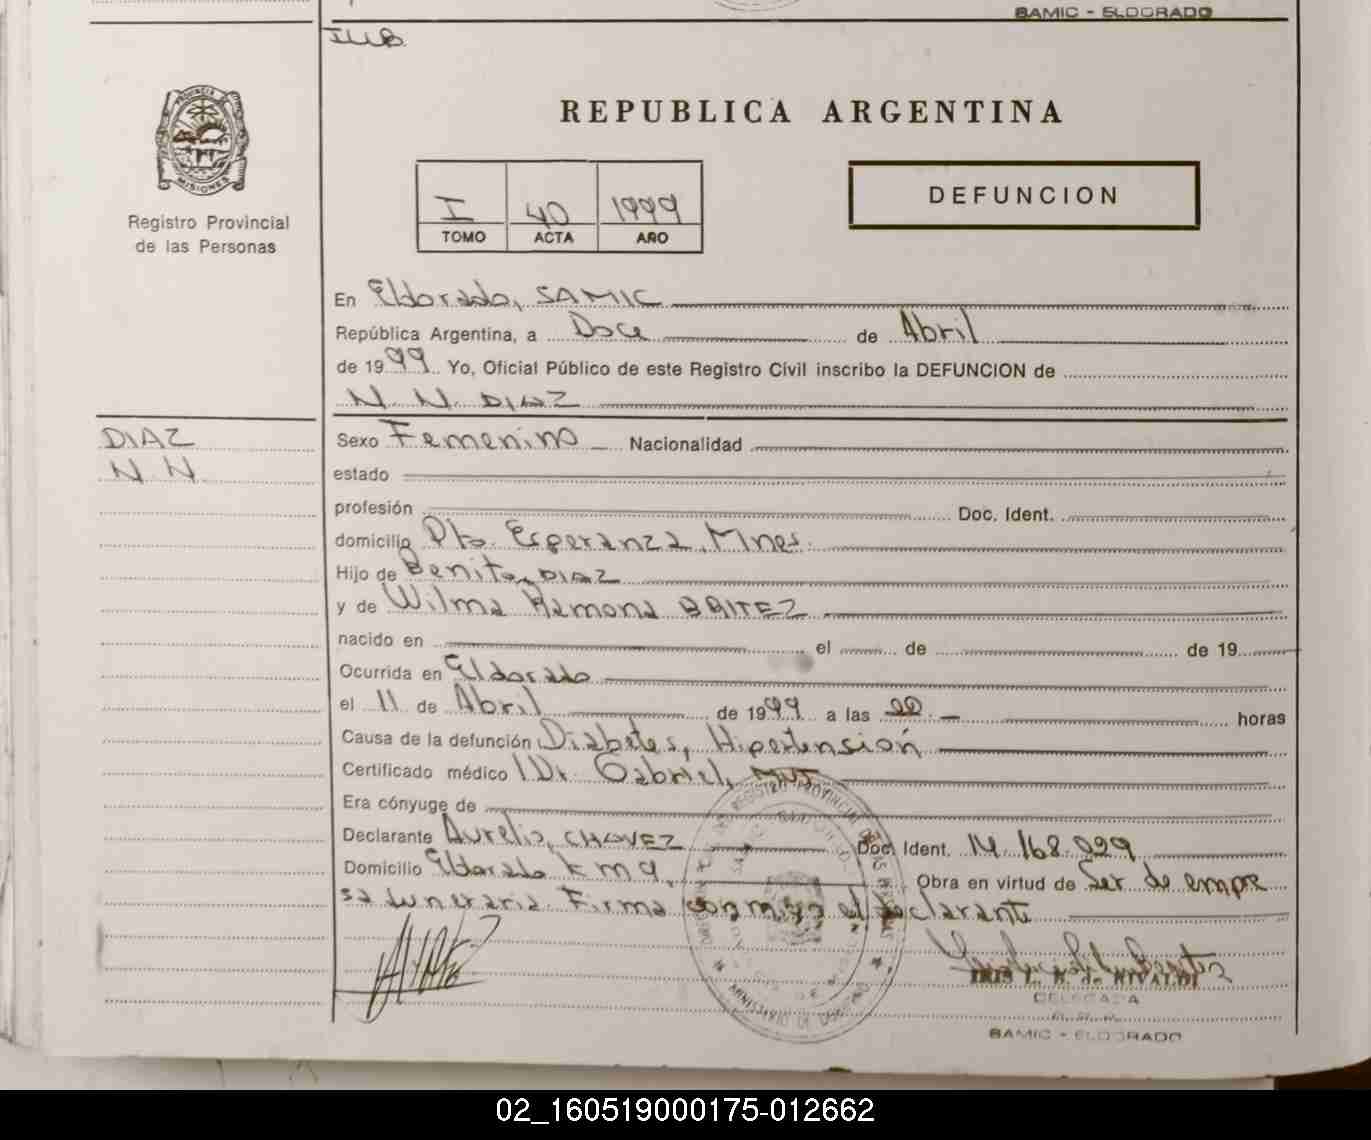 SAMIC - ELDORADO
REPUBLICA ARGENTINA
PROVINCIA DE
MISIONES
Registro Provincial
de las Personas
I 40 1999
TOMO ACTA AÑO
DEFUNCION
En Eldorado, SAMIC
República Argentina, a Doce de Abril
de 1999 Yo, Oficial Público de este Registro Civil inscribo la DEFUNCION de
N N DIAZ
DIAZ
N N
Sexo Femenino Nacionalidad
estado
profesión Doc. Ident.
domicilio Pto. Esperanza, Mnes.
Hijo de Benito DIAZ
y de Wilma Ramona BRITEZ
nacido en el de de 19
Ocurrida en Eldorado
el 11 de Abril de 1999 a las 22 horas
Causa de la defunción Diabetes, Hipertensión
Certificado médico Dr. Gabriel,
Era cónyuge de
Declarante Aurelio, CHAVEZ Doc. Ident. 14.168.029
Domicilio Eldorado Km 9, Obra en virtud de Ser de empre
sa funeraria. Firma conmigo el declarante
DELEGADA
SAMIC - ELDORADO
02_160519000175-012662